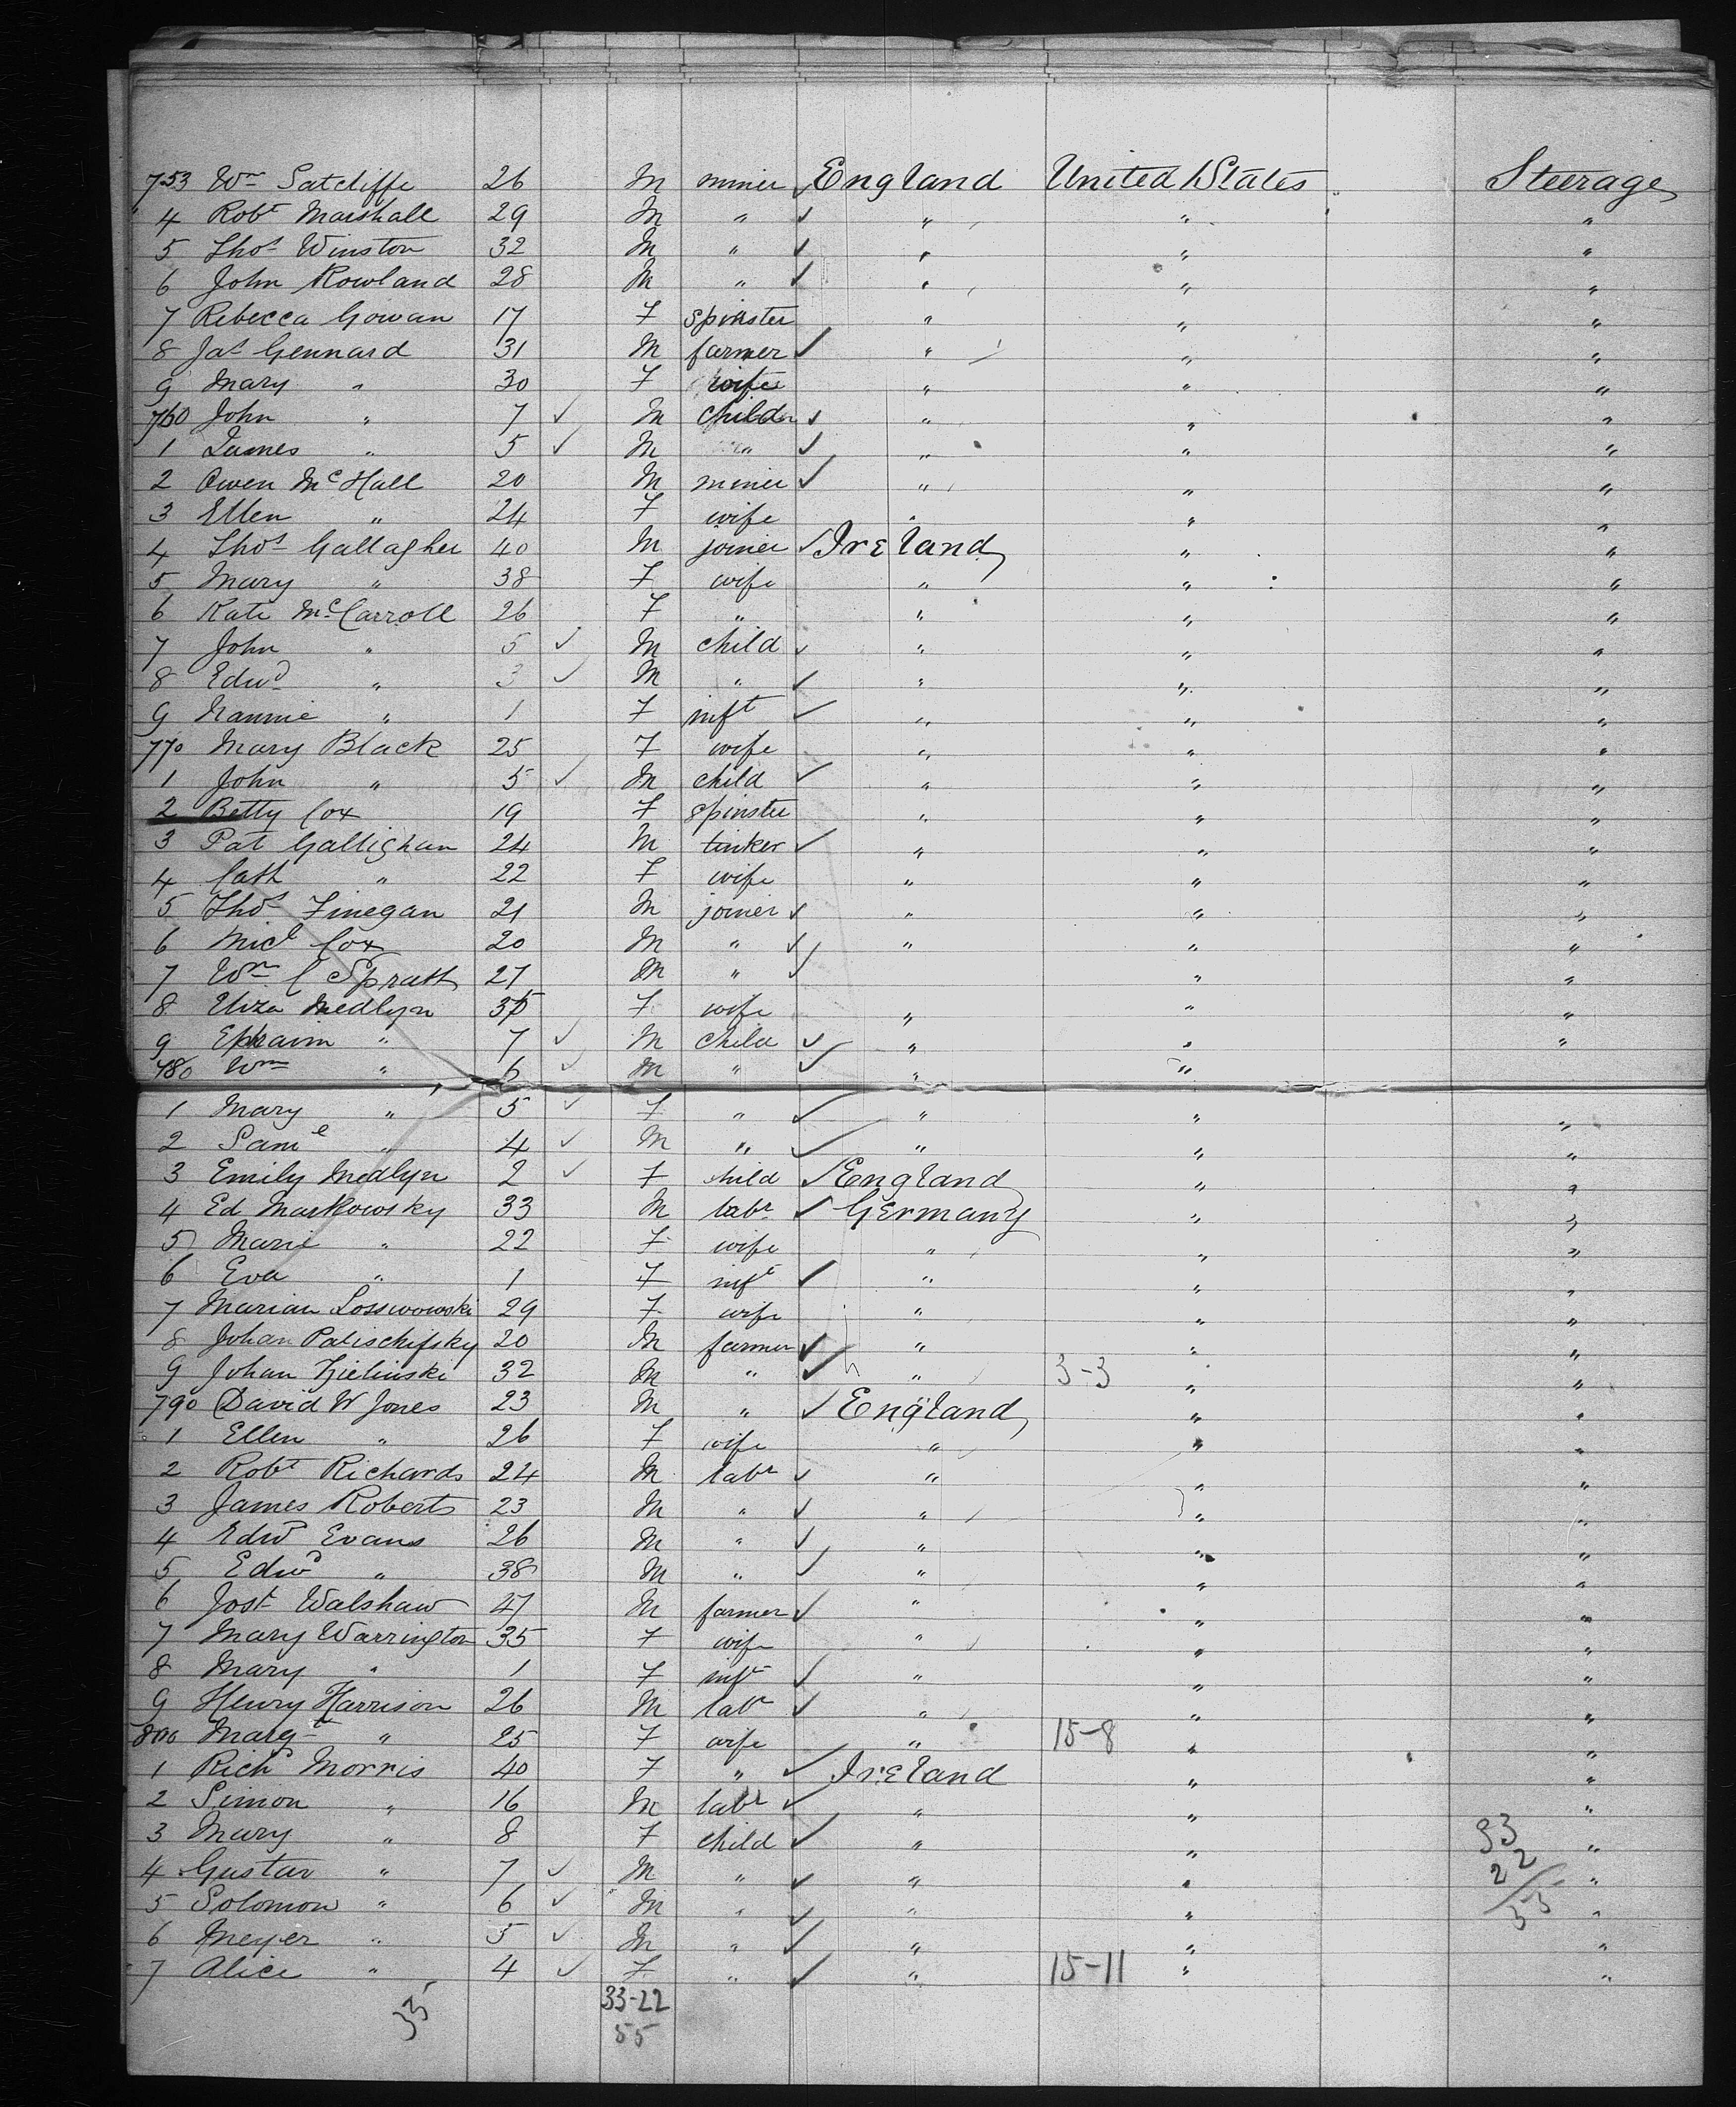 753 Wm Satcliffe 26 M miner ✓ England United States Steerage
4 Robt Marshall 29 M " ✓ " " "
5 Thos Winston 32 M " ✓ " " "
6 John Rowland 28 M " ✓ " " "
7 Rebecca Gowan 17 F spinster " " "
8 Jas Gennard 31 M farmer ✓ " " "
9 Mary " 30 F wife " " "
760 John " 7 ✓ M child ✓ " " "
1 James " 5 ✓ M " ✓ " " "
2 Owen McHall 20 M miner ✓ " " "
3 Ellen " 24 F wife " " "
4 Thos Gallagher 40 M joiner ✓ Ireland " "
5 Mary " 38 F wife " " "
6 Kate McCarroll 26 F " " " "
7 John " 5 ✓ M child ✓ " " "
8 Edwd " 3 ✓ M " ✓ " " "
9 Nannie " 1 F inft ✓ " " "
770 Mary Black 25 F wife " " "
1 John " 5 ✓ M child ✓ " " "
2 Betty Cox 19 F spinster " " "
3 Pat Gallighan 24 M tinker ✓ " " "
4 Cath " 22 F wife " " "
5 Thos Finegan 21 M joiner ✓ " " "
6 Micl Cox 20 M " ✓ " " "
7 Wm C Spratt 27 M " ✓ " "
8 Eliza Medlyn 35 F wife " " "
9 Ephraim " 7 ✓ M child ✓ " " "
780 Wm " 6 ✓ M " ✓ " "
1 Mary " 5 ✓ F " ✓ " " "
2 Saml " 4 ✓ M " ✓ " " "
3 Emily Medlyn 2 ✓ F child ✓ England " "
4 Ed Markowsky 33 M labr ✓ Germany " "
5 Marie " 22 F wife " " "
6 Eva " 1 F inft ✓ " " "
7 Marian Losswowski 29 F wife " " "
8 Johan Palischifsky 20 M farmer ✓ " " "
9 Johan Zielinski 32 M " ✓ " 3-3 " "
790 David W Jones 23 M " ✓ England " "
1 Ellen " 26 F wife " " "
2 Robt Richards 24 M labr ✓ " " "
3 James Roberts 23 M " ✓ " " "
4 Edwd Evans 26 M " ✓ " " "
5 Edwd " 38 M " ✓ " " "
6 Josh Walshaw 47 M farmer ✓ " " "
7 Mary Warrington 35 F wife " " "
8 Mary " 1 F inft ✓ " " "
9 Henry Harrison 26 M labr ✓ " " "
800 Margt " 25 F wife " 15-8 " "
1 Richd Morris 40 F " ✓ Ireland " "
2 Simon " 16 M labr ✓ " " "
3 Mary " 8 F child ✓ " " 33 "
4 Gustav " 7 ✓ M " ✓ " " 22 "
5 Solomon " 6 ✓ M " ✓ " " 55 "
6 Meyer " 5 ✓ M " ✓ " " "
7 Alice " 4 ✓ F " ✓ " 15-11 " "
33-22
55